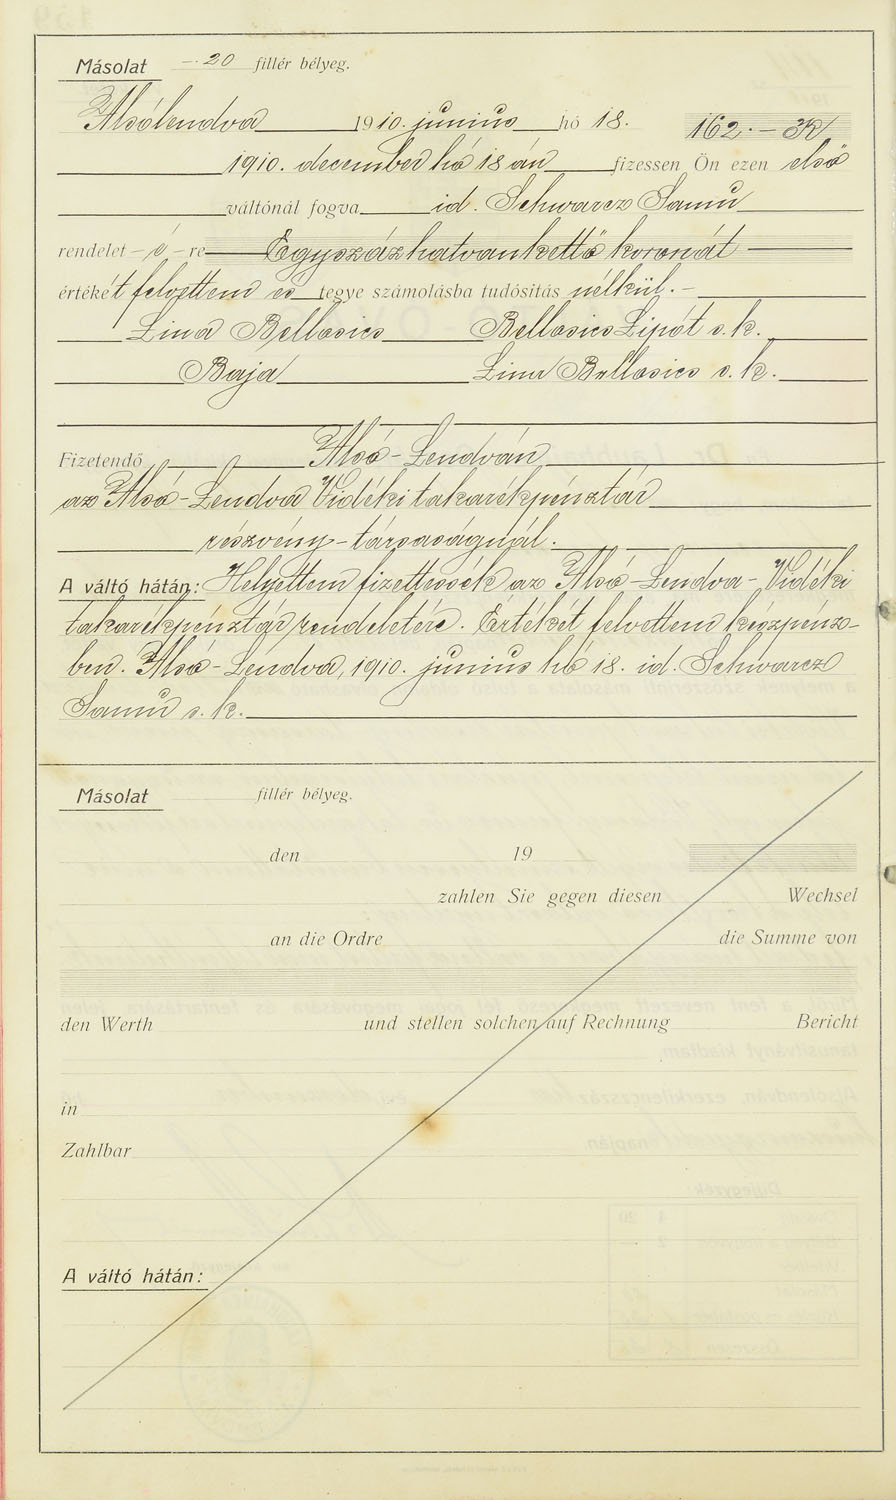 Másolat –.20 fillér bélyeg.
Alsólendva 1910. junius hó 18. 162.– K
1910. december hó 18 án fizessen Ön ezen első
váltónál fogva id. Schwarcz Samu
rendelet – é – re Egyszázhatvankettő koronát
értékét felvettem és tegye számolásba tudósitás nélkül. –
Lina Bellosics Bellosics Lipót s. k.
Baja Lina Bellosics s. k.
Fizetendő Alsó-Lendván
az Alsó-Lendva Vidéki takarékpénztár
részvény-társaságnál.
A váltó hátán: Helyettem fizettessék az Alsó-Lendva-Vidéki
takarékpénztár rendeletére. Értékét felvettem készpénz-
ben. Alsó-Lendva, 1910. junius hó 18. id. Schwarcz
Samu s. k.
Másolat fillér bélyeg.
den 19
zahlen Sie gegen diesen Wechsel
an die Ordre die Summe von
den Werth und stellen solchen auf Rechnung Bericht
in
Zahlbar
A váltó hátán: